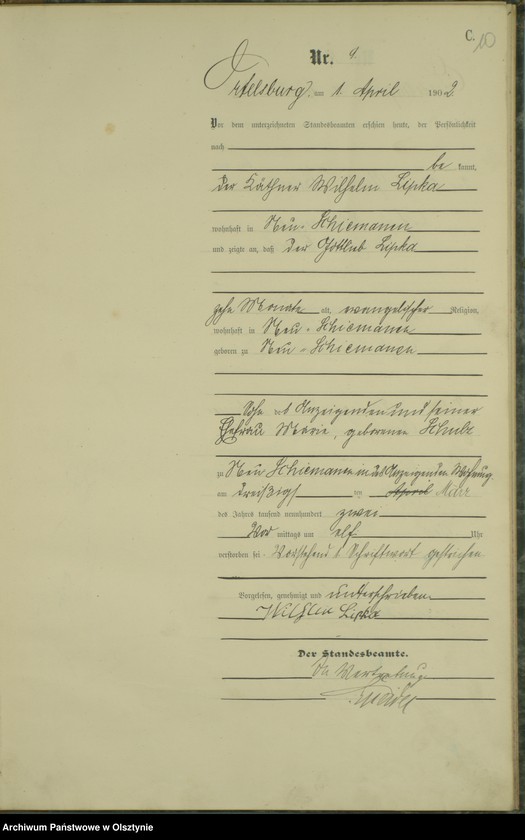 C.
10
Nr. 9.
Ortelsburg, am 1. April 1902
Vor dem unterzeichneten Standesbeamten erschien heute, der Persönlichkeit
nach
be kannt,
der Käthner Wilhelm Lipka
wohnhaft in Neu-Schiemanen
und zeigte an, daß der Gottlieb Lipka
zehn Monate alt, evangelischer Religion,
wohnhaft in Neu-Schiemanen
geboren zu Neu-Schiemanen
Sohn des Anzeigenden und seiner
Ehefrau Marie, geborenen Schulz
zu Neu Schiemanen in des Anzeigenden Wohnung
am dreißigst ten April März
des Jahres tausend neunhundert zwei
Vor mittags um elf Uhr
verstorben sei. Vorstehend 1 Schriftwort gestrichen
Vorgelesen, genehmigt und unterschrieben
Wilhelm Lipka
Der Standesbeamte.
In Vertretung
Archiwum Państwowe w Olsztynie